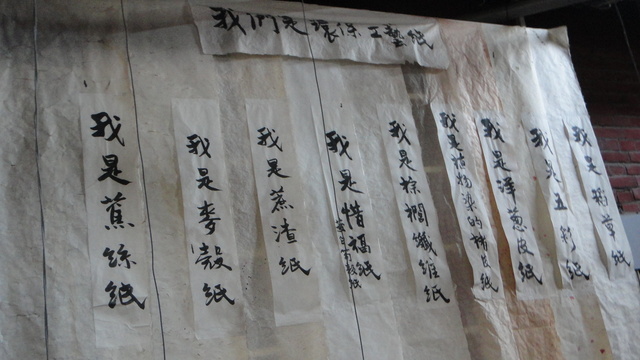 我們是環保工藝紙
我是蕉絲紙
我是麥殼紙
我是蔗渣紙
我是惜福紙
我是棕櫚纖維紙
我是植物染的皮紙
我是洋蔥皮紙
我是五彩紙
我是稻草紙